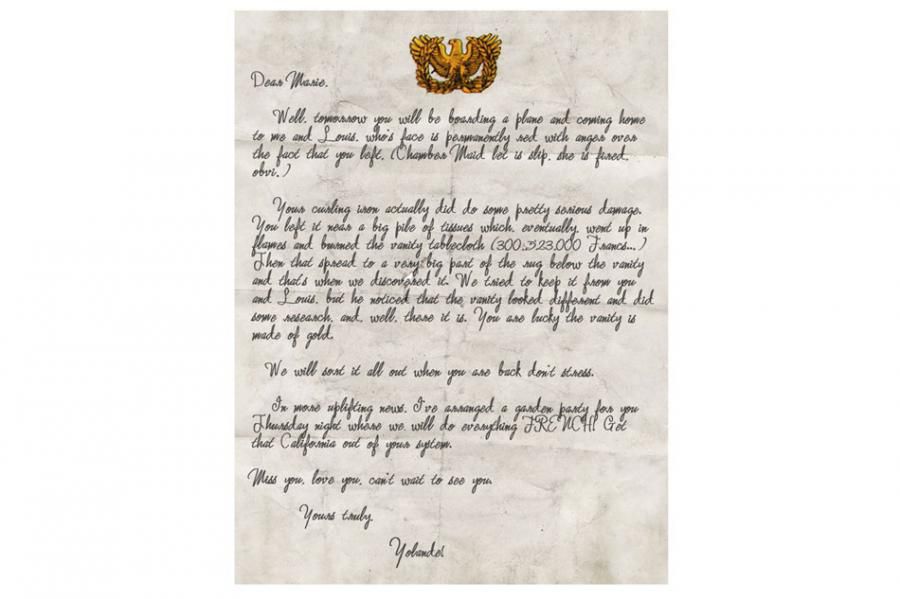 Dear Marie,
Well, tomorrow you will be boarding a plane and coming home
to me and Louis, who's face is permanently red with anger over
the fact that you left. (Chamber Maid let is slip, she is fired,
obvi.)
Your curling iron actually did do some pretty serious damage.
You left it near a big pile of tissues which, eventually, went up in
flames and burned the vanity tablecloth (300,323,000 Francs...)
Then that spread to a very big part of the rug below the vanity
and that's when we discovered it. We tried to keep it from you
and Louis, but he noticed that the vanity looked different and did
some research, and, well, there it is. You are lucky the vanity is
made of gold.
We will sort it all out when you are back don't stress.
In more uplifting news, I've arranged a garden party for you
Thursday night where we will do everything FRENCH! Get
that California out of your system.
Miss you, love you, can't wait to see you,
Yours truly,
Yolande!